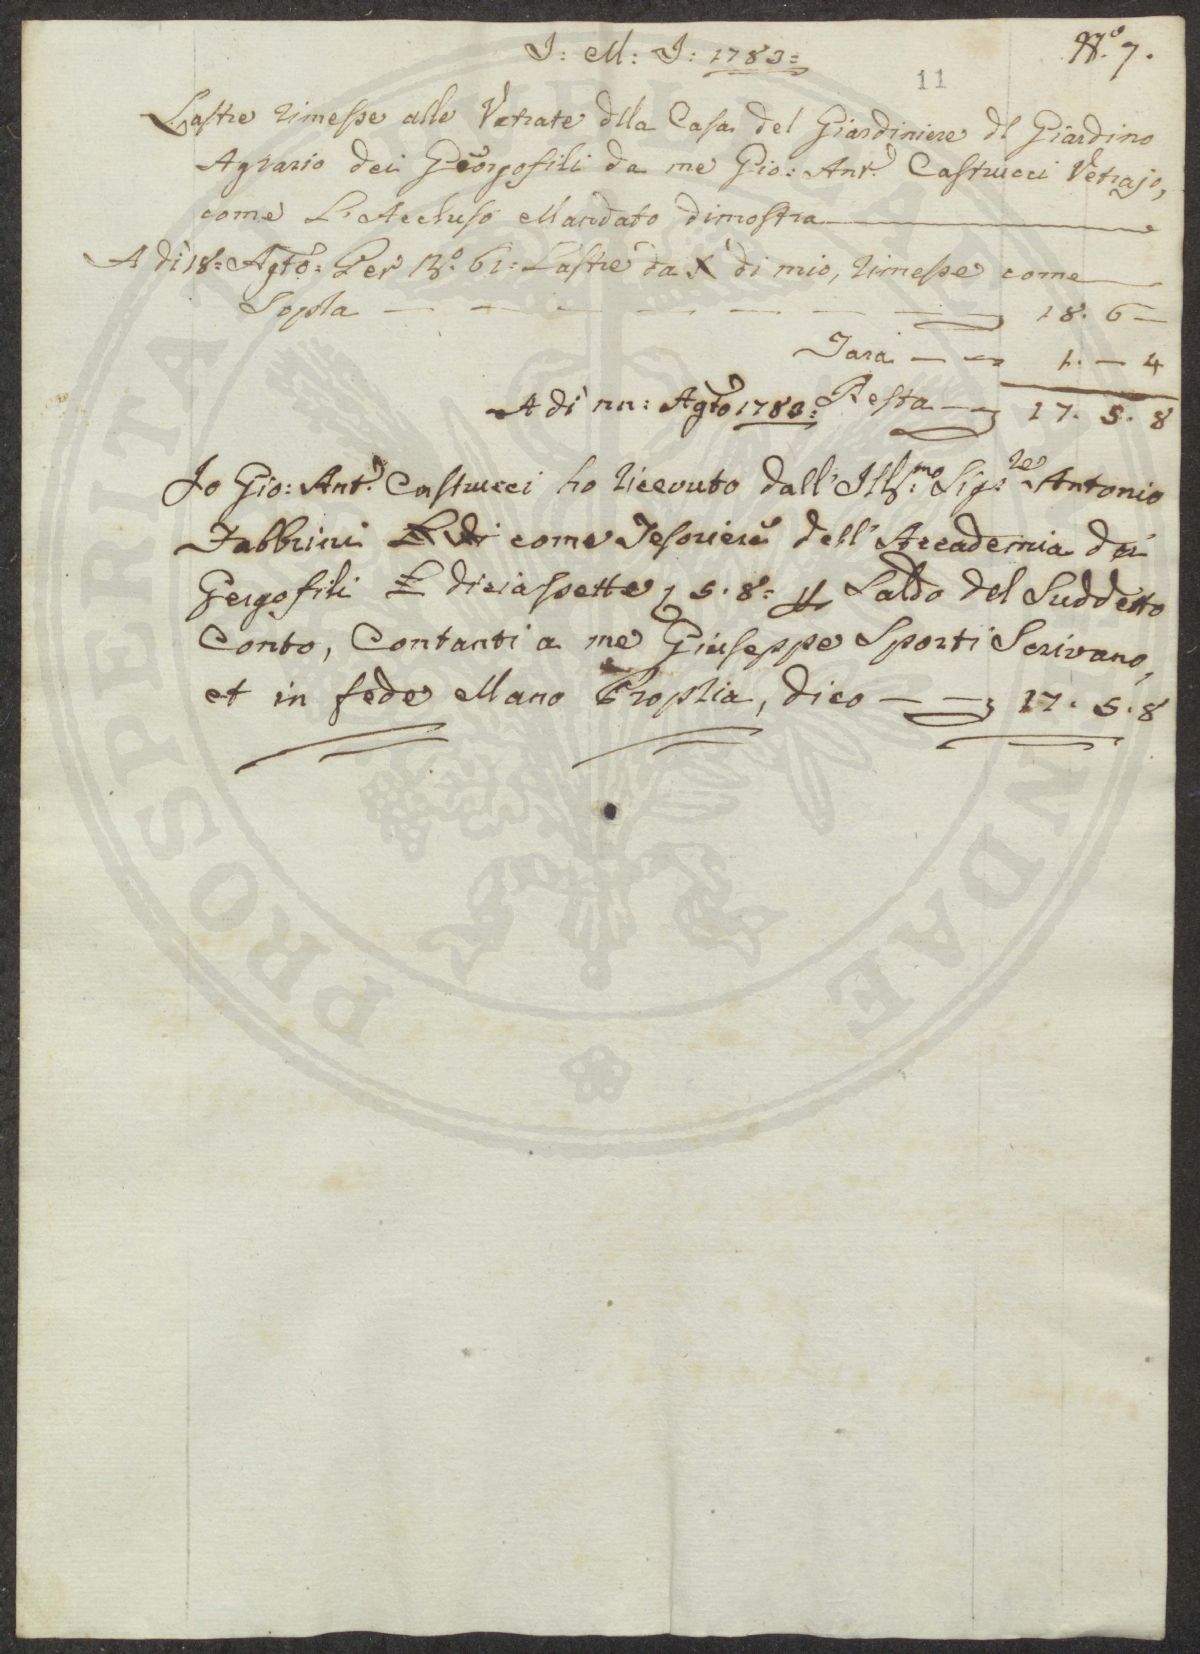 J: M: J: 1783=
N.º 7.
11
Lastre rimesse alle Vetrate dlla Casa del Giardiniere dl Giardino
Agrario dei Georgofili da me Gio: Ant.º Castrucci Vetrajo,
come L'Accluso Mandato dimostra
A dì 18= Agtº= Per N.º 61= Lastre da X di mio, rimesse come
Sopra — — — — — — — 18. 6 —
Tara — — 1. — 4
A dì nn: Agtº 1783= Resta — 17. 5. 8
Io Gio: Ant.º Castrucci ho ricevuto dall' Ill.mo Sig.re Antonio
Fabbrini come Tesoriere dell' Accademia dei
Gergofili £ diciassette 5. 8= Saldo del Suddetto
Conto, Contanti a me Giuseppe Sporti Scrivano,
et in fede Mano Propria, dico — — 17. 5. 8
PROSPERITATI
NDAE